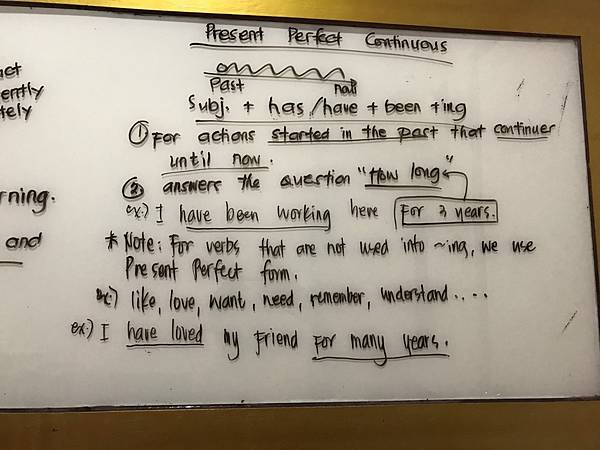 Present Perfect Continuous
Past now
Subj. + has/have + been + ing
① For actions started in the past that continuer
until now.
② answers the question "How long"
ex:) I have been working here For 3 years.
* Note: For verbs that are not used into ~ing, we use
Present Perfect form.
ex:) like, love, want, need, remember, understand....
ex:) I have loved my Friend For many years.
ently
tely
rning.
and